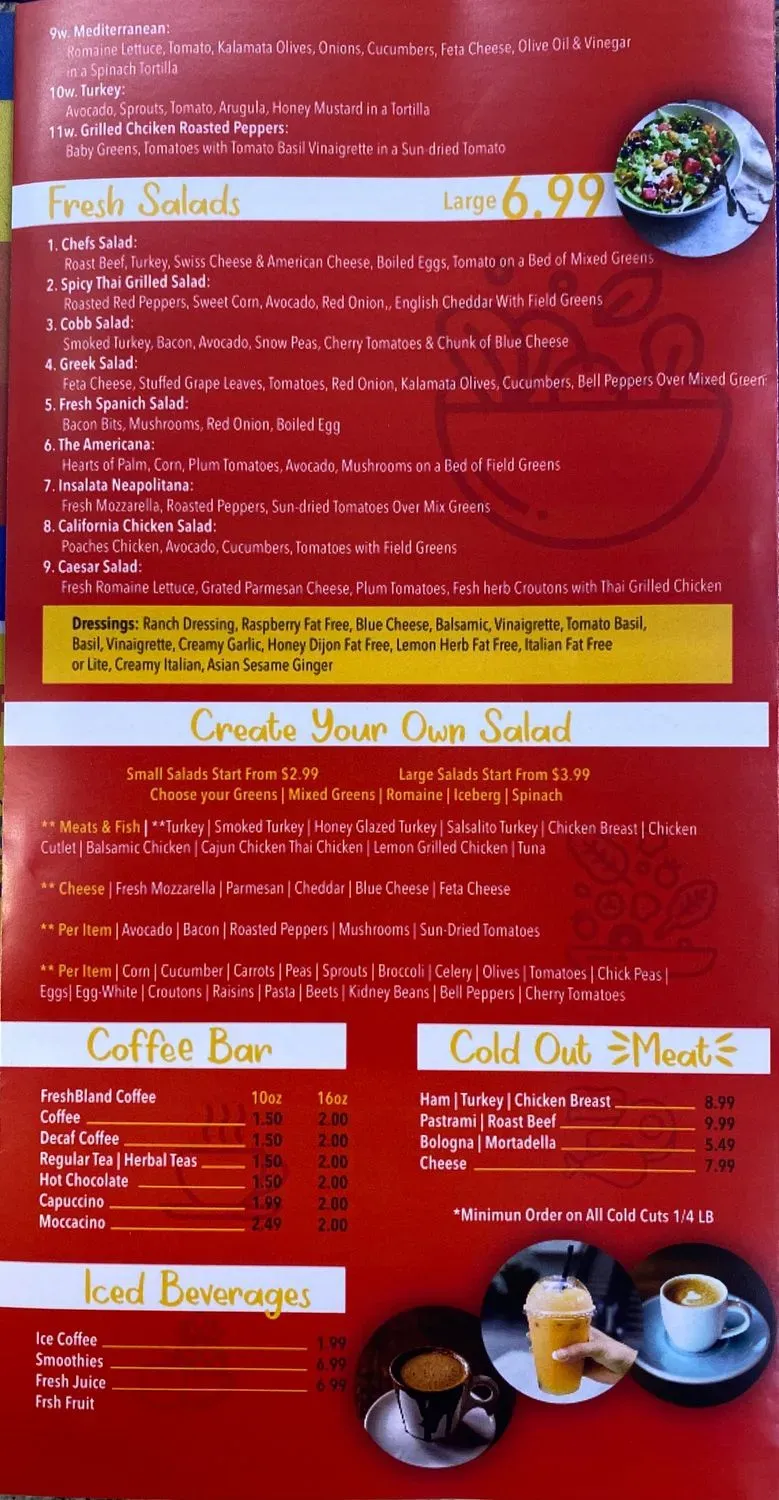 9w. Mediterranean:
Romaine Lettuce, Tomato, Kalamata Olives, Onions, Cucumbers, Feta Cheese, Olive Oil & Vinegar
in a Spinach Tortilla
10w. Turkey:
Avocado, Sprouts, Tomato, Arugula, Honey Mustard in a Tortilla
11w. Grilled Chciken Roasted Peppers:
Baby Greens, Tomatoes with Tomato Basil Vinaigrette in a Sun-dried Tomato
Fresh Salads Large 6.99
1. Chefs Salad:
Roast Beef, Turkey, Swiss Cheese & American Cheese, Boiled Eggs, Tomato on a Bed of Mixed Greens
2. Spicy Thai Grilled Salad:
Roasted Red Peppers, Sweet Corn, Avocado, Red Onion,, English Cheddar With Field Greens
3. Cobb Salad:
Smoked Turkey, Bacon, Avocado, Snow Peas, Cherry Tomatoes & Chunk of Blue Cheese
4. Greek Salad:
Feta Cheese, Stuffed Grape Leaves, Tomatoes, Red Onion, Kalamata Olives, Cucumbers, Bell Peppers Over Mixed Green
5. Fresh Spanich Salad:
Bacon Bits, Mushrooms, Red Onion, Boiled Egg
6. The Americana:
Hearts of Palm, Corn, Plum Tomatoes, Avocado, Mushrooms on a Bed of Field Greens
7. Insalata Neapolitana:
Fresh Mozzarella, Roasted Peppers, Sun-dried Tomatoes Over Mix Greens
8. California Chicken Salad:
Poaches Chicken, Avocado, Cucumbers, Tomatoes with Field Greens
9. Caesar Salad:
Fresh Romaine Lettuce, Grated Parmesan Cheese, Plum Tomatoes, Fesh herb Croutons with Thai Grilled Chicken
Dressings: Ranch Dressing, Raspberry Fat Free, Blue Cheese, Balsamic, Vinaigrette, Tomato Basil,
Basil, Vinaigrette, Creamy Garlic, Honey Dijon Fat Free, Lemon Herb Fat Free, Italian Fat Free
or Lite, Creamy Italian, Asian Sesame Ginger
Create Your Own Salad
Small Salads Start From $2.99 Large Salads Start From $3.99
Choose your Greens | Mixed Greens | Romaine | Iceberg | Spinach
** Meats & Fish | **Turkey | Smoked Turkey | Honey Glazed Turkey | Salsalito Turkey | Chicken Breast | Chicken
Cutlet | Balsamic Chicken | Cajun Chicken Thai Chicken | Lemon Grilled Chicken | Tuna
** Cheese | Fresh Mozzarella | Parmesan | Cheddar | Blue Cheese | Feta Cheese
** Per Item | Avocado | Bacon | Roasted Peppers | Mushrooms | Sun-Dried Tomatoes
** Per Item | Corn | Cucumber | Carrots | Peas | Sprouts | Broccoli | Celery | Olives | Tomatoes | Chick Peas |
Eggs| Egg-White | Croutons | Raisins | Pasta | Beets | Kidney Beans | Bell Peppers | Cherry Tomatoes
Coffee Bar
FreshBland Coffee 10oz 16oz
Coffee 1.50 2.00
Decaf Coffee 1.50 2.00
Regular Tea | Herbal Teas 1.50 2.00
Hot Chocolate 1.50 2.00
Capuccino 1.99 2.00
Moccacino 2.49 2.00
Cold Out Meat
Ham | Turkey | Chicken Breast 8.99
Pastrami | Roast Beef 9.99
Bologna | Mortadella 5.49
Cheese 7.99
*Minimun Order on All Cold Cuts 1/4 LB
Iced Beverages
Ice Coffee 1.99
Smoothies 6.99
Fresh Juice 6.99
Frsh Fruit